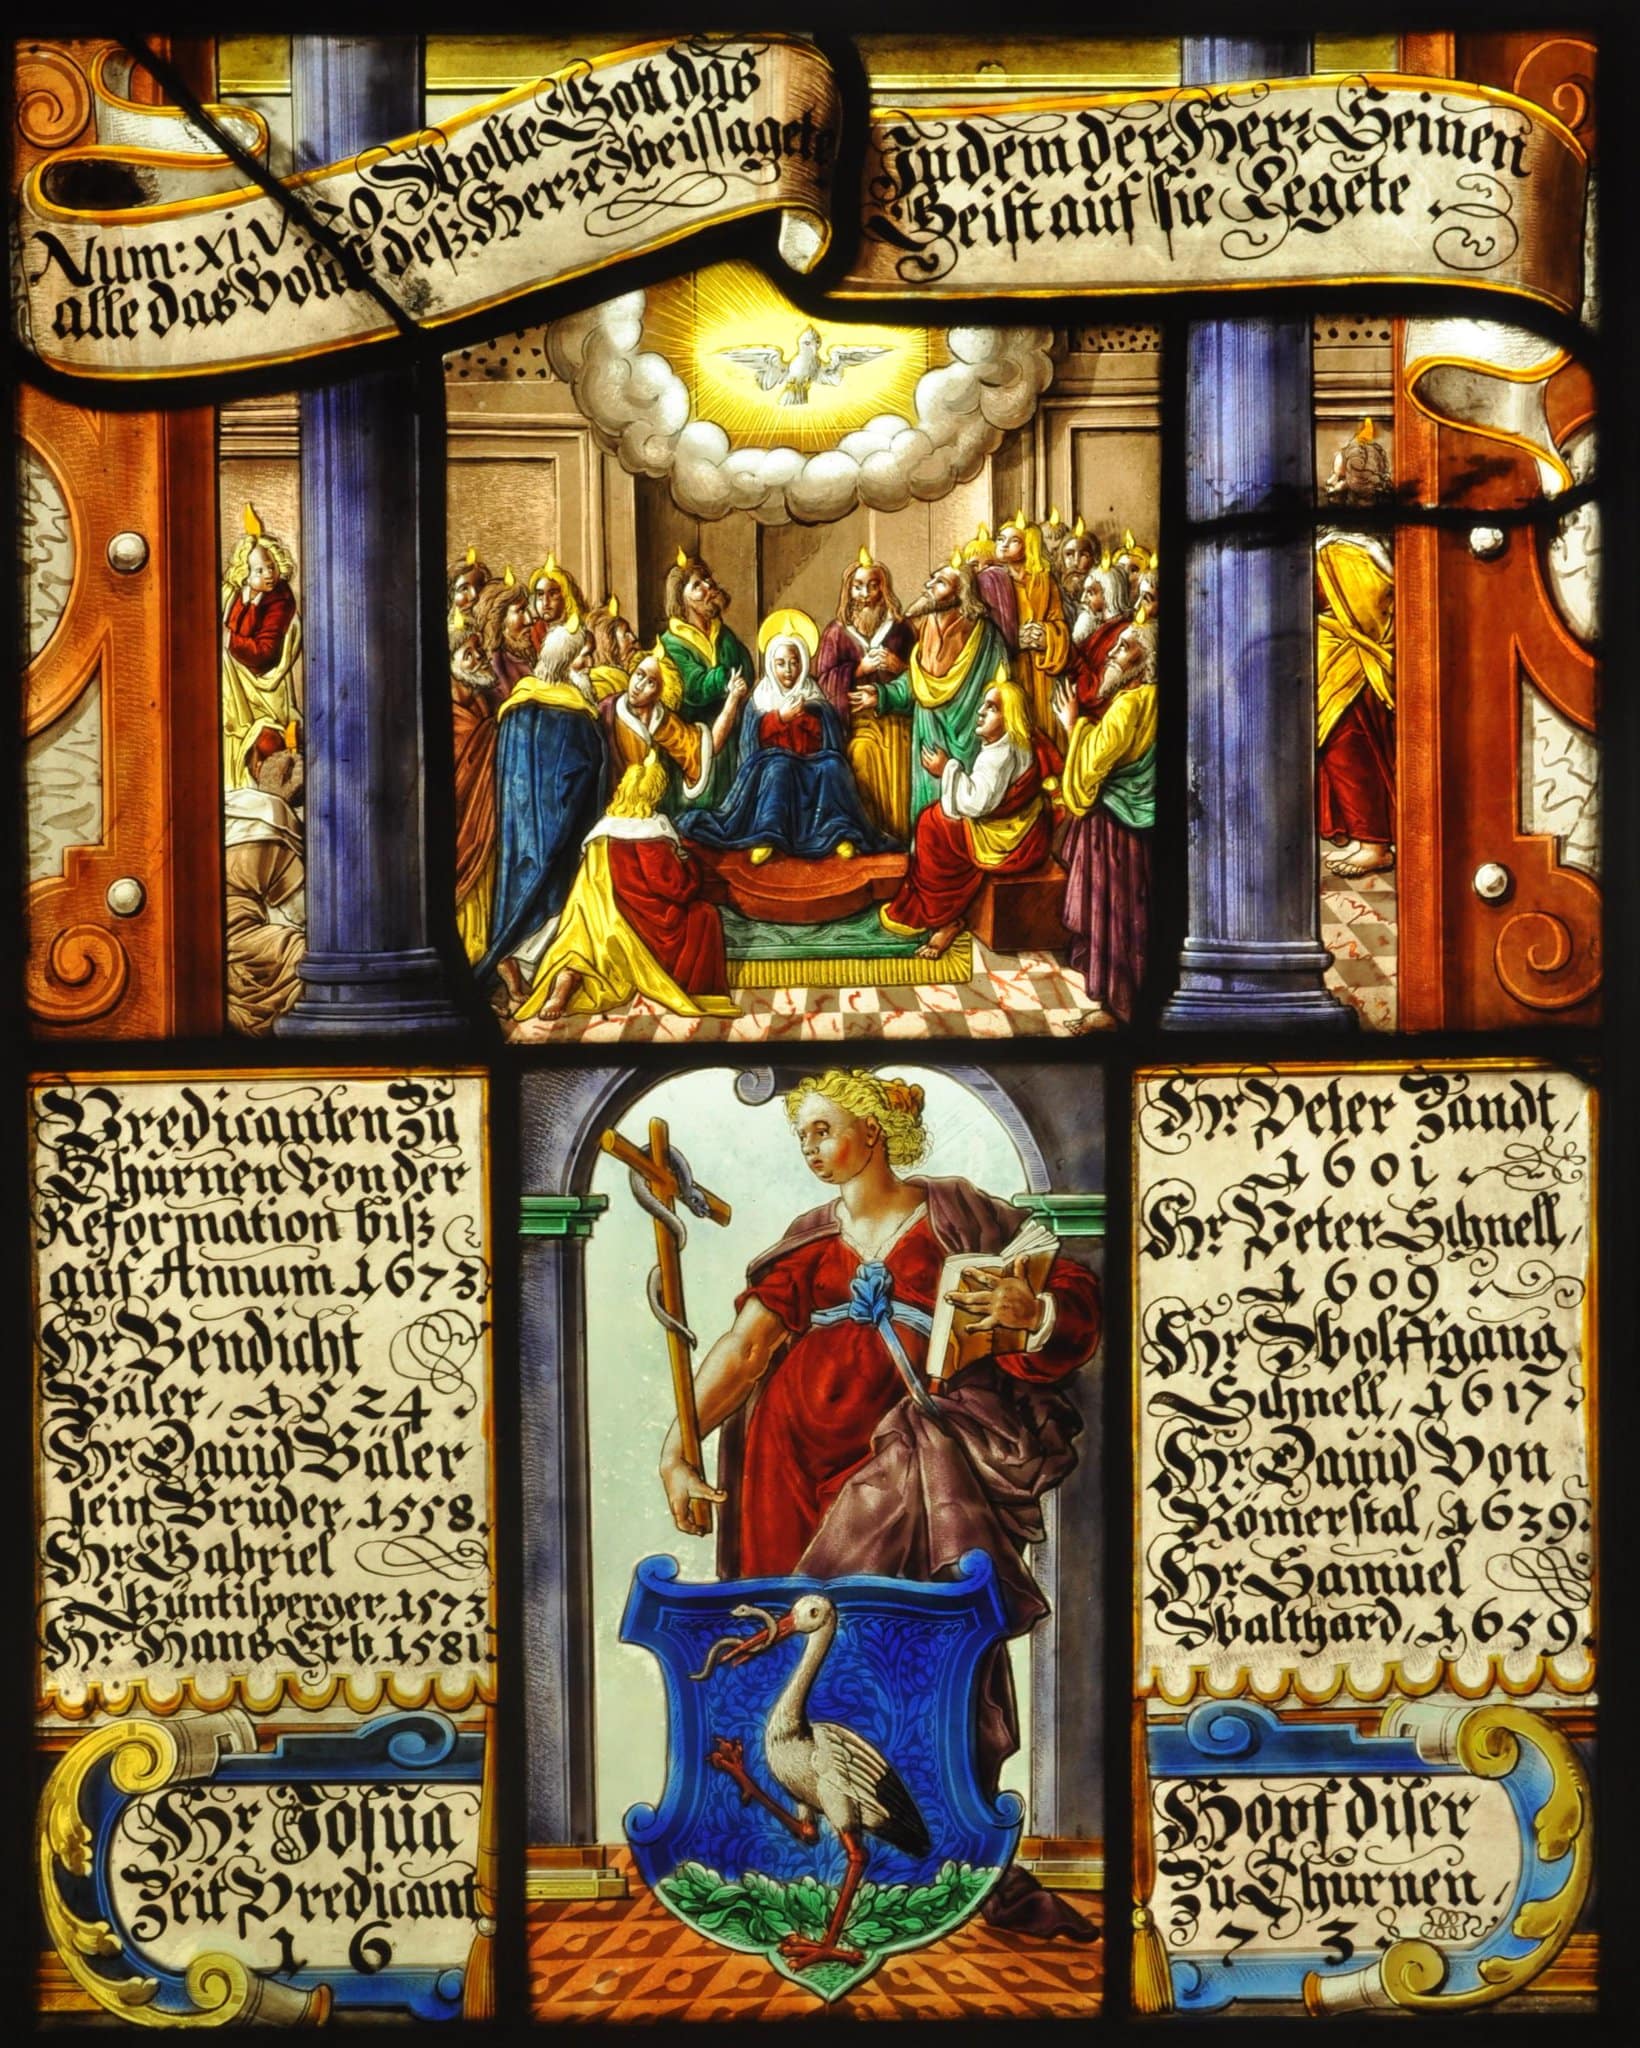 Num: XI, V. 29. Wolte Gott das
alle das Volck deß Herren Weissagete
In dem der Herr Seinen
Geist auf sie Legete.
Predicanten Zů
Thurnen Von der
Reformation biß
auf Annum 1673.
Hr. Bendicht
Bäler, 1524.
Hr. Dauid Bäler
sein Brůder, 1558.
Hr. Gabriel
Büntisperger, 1573
Hr. Hans Erb, 1581.
Hr. Peter Zandt,
1601.
Hr. Peter Schnell,
1609.
Hr. Wolffgang
Schnell, 1617.
Hr. Dauid Von
Römerstal, 1639.
Hr. Samuel
Walthard, 1659.
Hr. Josua
Zeit Predicant
16
Hopf diser
Zů Thurnen,
73.